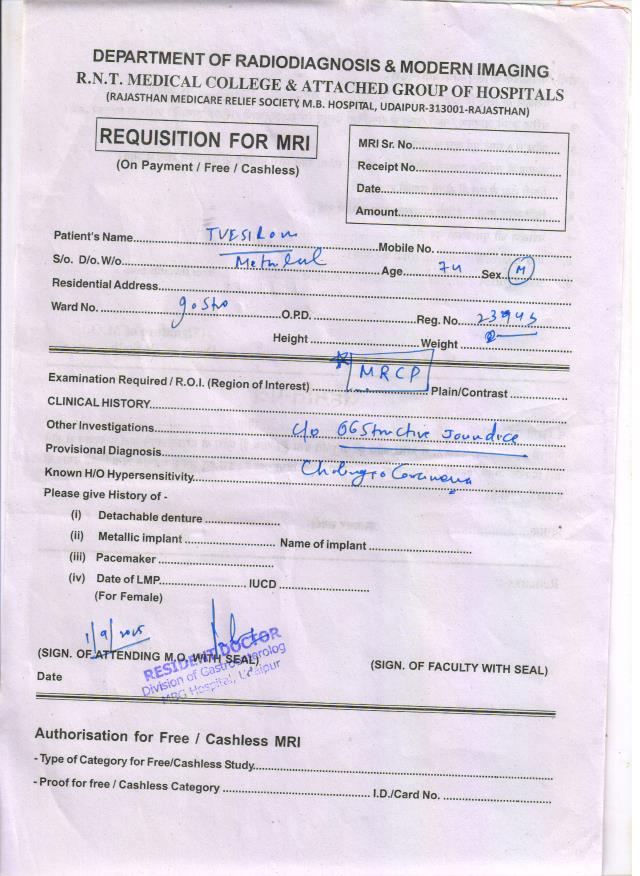 DEPARTMENT OF RADIODIAGNOSIS & MODERN IMAGING
R.N.T. MEDICAL COLLEGE & ATTACHED GROUP OF HOSPITALS
(RAJASTHAN MEDICARE RELIEF SOCIETY, M.B. HOSPITAL, UDAIPUR-313001-RAJASTHAN)
REQUISITION FOR MRI
(On Payment / Free / Cashless)
MRI Sr. No.
Receipt No.
Date
Amount
Patient's Name Mobile No.
S/o. D/o. W/o Age 74 Sex. M
Residential Address
Ward No. O.P.D. Reg. No.
Height Weight
Examination Required / R.O.I. (Region of Interest) MRCP Plain/Contrast
CLINICAL HISTORY
Other Investigations c/o Obstructive Jaundice
Provisional Diagnosis
Known H/O Hypersensitivity Cholangio Carcinoma
Please give History of -
(i) Detachable denture
(ii) Metallic implant Name of implant
(iii) Pacemaker
(iv) Date of LMP IUCD
(For Female)
1/9/2015
(SIGN. OF ATTENDING M.O. WITH SEAL) (SIGN. OF FACULTY WITH SEAL)
RESIDENT DOCTOR
Division of Gastroenterolog
MBG Hospital, Udaipur
Date
Authorisation for Free / Cashless MRI
- Type of Category for Free/Cashless Study
- Proof for free / Cashless Category I.D./Card No.